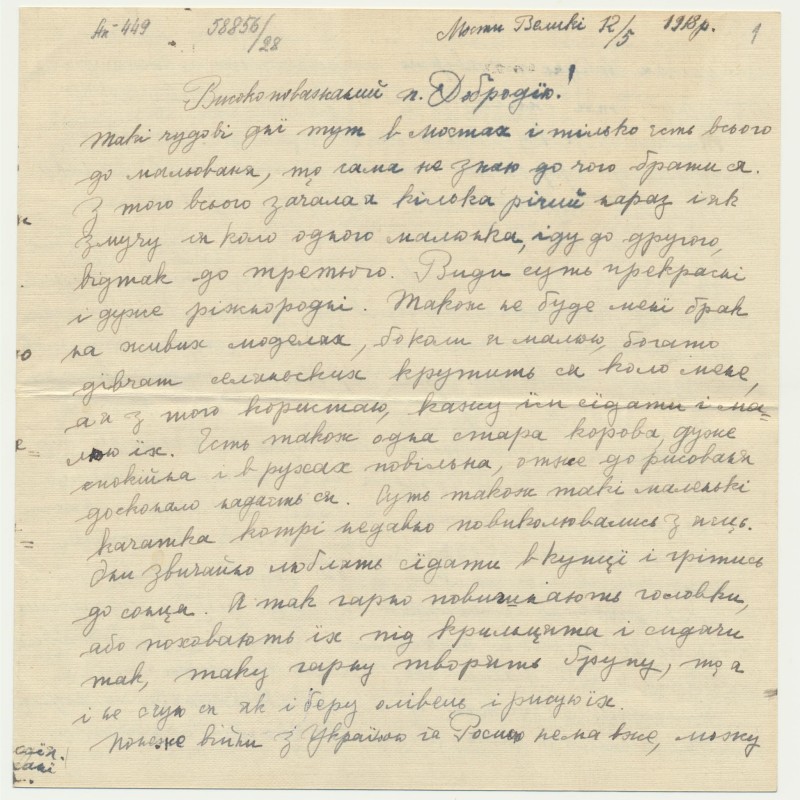 Ап-449 58856/28 Мости Великі 12/5 1918р. 1
Високоповажаний п. Добродію!
Такі чудові дні тут в Мостах і тілько єсть всього
до мальованя, що сама не знаю до чого братися.
З того всього зачала я кілька річий нараз і як
змучу ся коло одного малюнка, іду до другого,
відтак до третього. Види суть прекрасні
і дуже ріжнородні. Також не буде мені брак
на живих моделях, бо коли я малюю, богато
дівчат селяньских крутить ся коло мене,
а я з того користаю, кажу їм сїдати і ма-
люю їх. Єсть також одна стара корова, дуже
спокійна і в рухах повільна, отже до рисованя
досконало надасть ся. Суть також такі маленькі
качатка котрі недавно повиколювались з яєць.
Они звичайно люблять сїдати в купцї і грітись
до сонця. А так гарно повитинають головки,
або поховають їх під крильцята і сидячи
так, таку гарну творять ґрупу, що я
і не счую ся як і беру олівець і рисую їх.
Понеже війни з Україною та Росиєю нема вже, можу